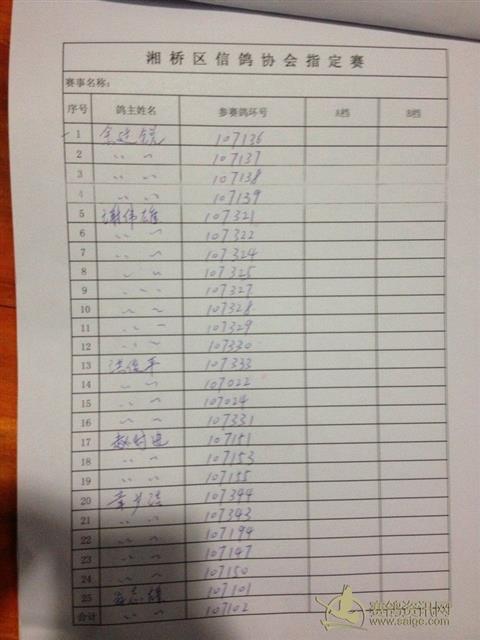 湘桥区信鸽协会指定赛
赛事名称:
序号 鸽主姓名 参赛鸽环号 A档 B档
1 107136
2 〃 〃 107137
3 〃 〃 107138
4 〃 〃 107139
5 谢伟雄 107321
6 〃 〃 107322
7 〃 〃 107324
8 〃 〃 107325
9 〃 〃 107327
10 〃 〃 107328
11 〃 〃 107329
12 〃 〃 107330
13 洪俊平 107333
14 〃 〃 107022
15 〃 〃 107024
16 〃 〃 107331
17 107151
18 〃 〃 107153
19 〃 〃 107155
20 107344
21 〃 〃 107343
22 〃 〃 107194
23 〃 〃 107147
24 〃 〃 107150
25 107101
合计 〃 〃 107102
赛鸽资讯网
www.saige.com